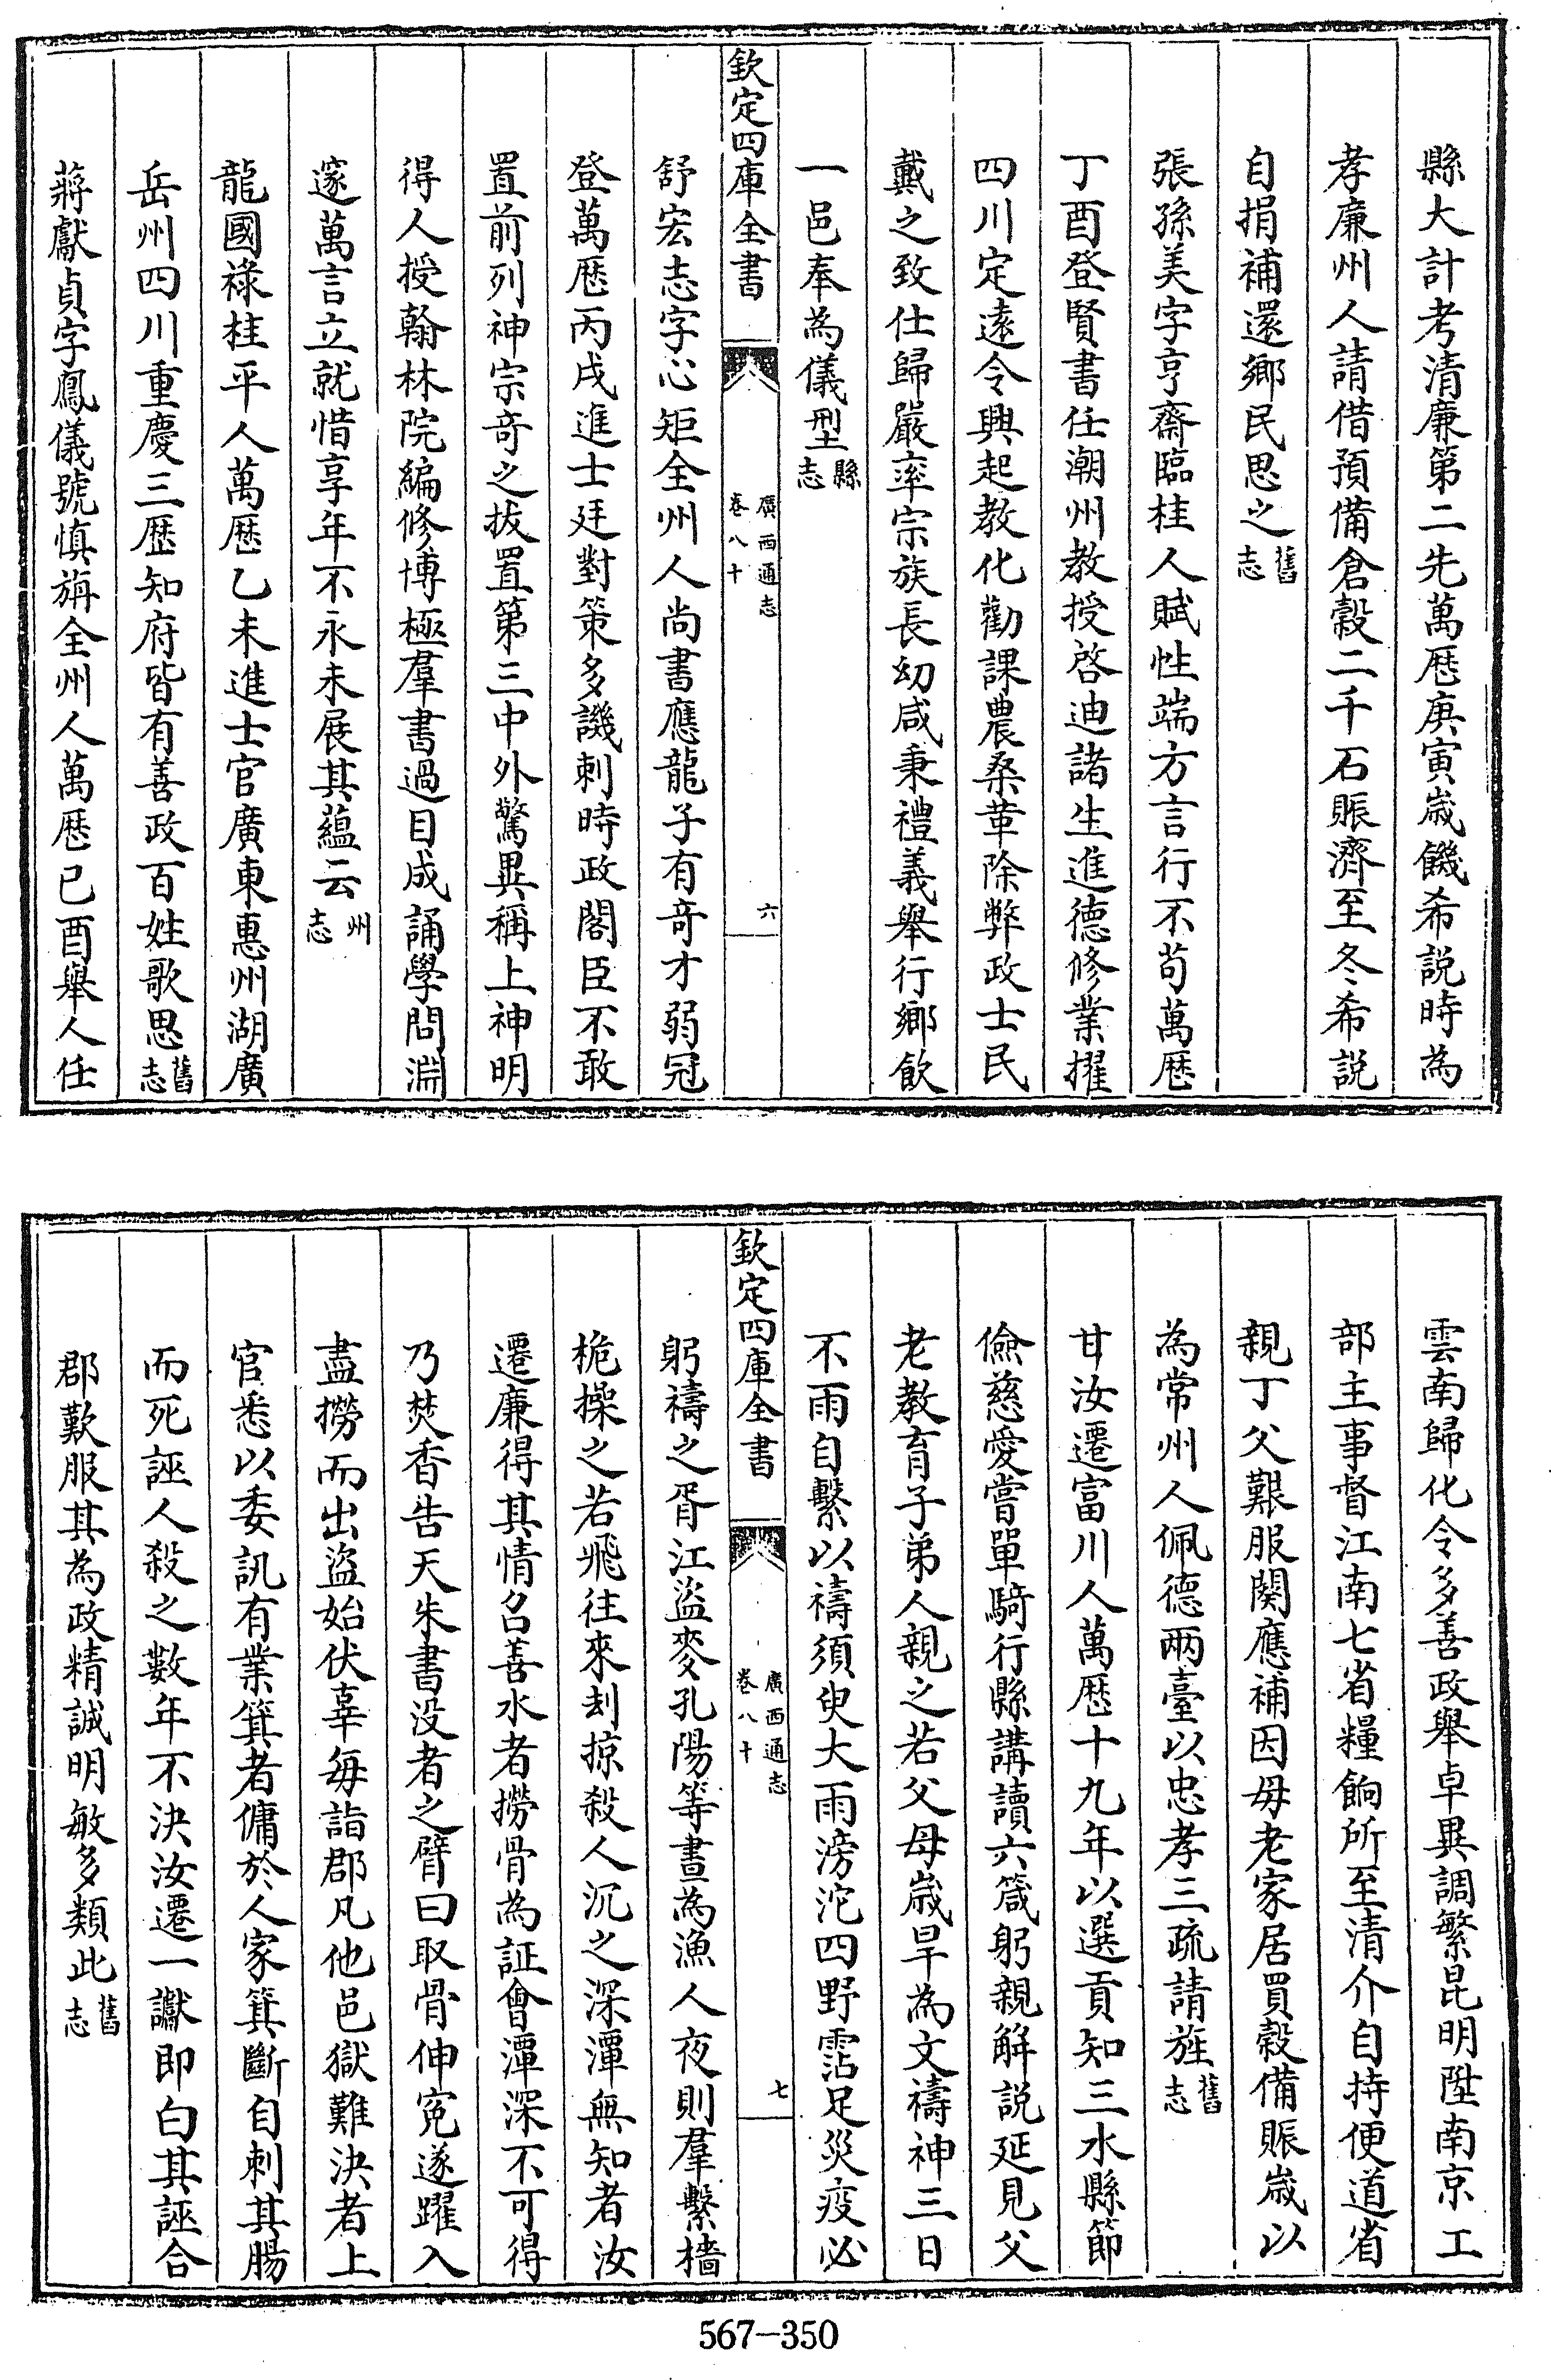 縣大計考清廉第二先萬厯庚寅歲饑希説時為
孝廉州人請借預備倉穀二千石賑濟至冬希説
自捐補還鄉民思之舊志
張孫美字亨齋臨桂人賦性端方言行不苟萬厯
丁酉登賢書任潮州教授啓迪諸生進德修業擢
四川定遠令興起教化勸課農桑革除弊政士民
戴之致仕歸嚴率宗族長幼咸秉禮義舉行鄉飲
一邑奉為儀型縣志
欽定四庫全書 廣西通志 卷八十 六
舒宏志字心矩全州人尚書應龍子有竒才弱冠
登萬厯丙戌進士廷對策多譏刺時政閣臣不敢
置前列神宗竒之拔置第三中外驚異稱上神明
得人授翰林院編修博極羣書過目成誦學問淵
邃萬言立就惜享年不永未展其蘊云州志
龍國祿桂平人萬厯乙未進士官廣東惠州湖廣
岳州四川重慶三歴知府皆有善政百姓歌思舊志
蔣獻貞字鳳儀號慎旃全州人萬厯已酉舉人任
雲南歸化令多善政舉卓異調繁昆明陞南京工
部主事督江南七省糧餉所至清介自持便道省
親丁父艱服闋應補因母老家居買穀備賑歲以
為常州人佩德兩臺以忠孝三疏請旌舊志
甘汝遷富川人萬厯十九年以選貢知三水縣節
儉慈愛嘗單騎行縣講讀六箴躬親解説延見父
老教育子弟人親之若父母歲旱為文禱神三日
不雨自繫以禱須臾大雨滂沱四野霑足災疫必
欽定四庫全書 廣西通志 卷八十 七
躬禱之胥江盜麥孔陽等晝為漁人夜則羣繫檣
桅操之若飛往來刦掠殺人沉之深潭無知者汝
遷廉得其情召善水者撈骨為証會潭深不可得
乃焚香告天朱書没者之臂曰取骨伸寃遂躍入
盡撈而出盜始伏辜每詣郡凡他邑獄難決者上
官悉以委訊有業箕者傭於人家箕斷自刺其腸
而死誣人殺之數年不決汝遷一讞即白其誣合
郡歎服其為政精誠明敏多類此舊志
567-350